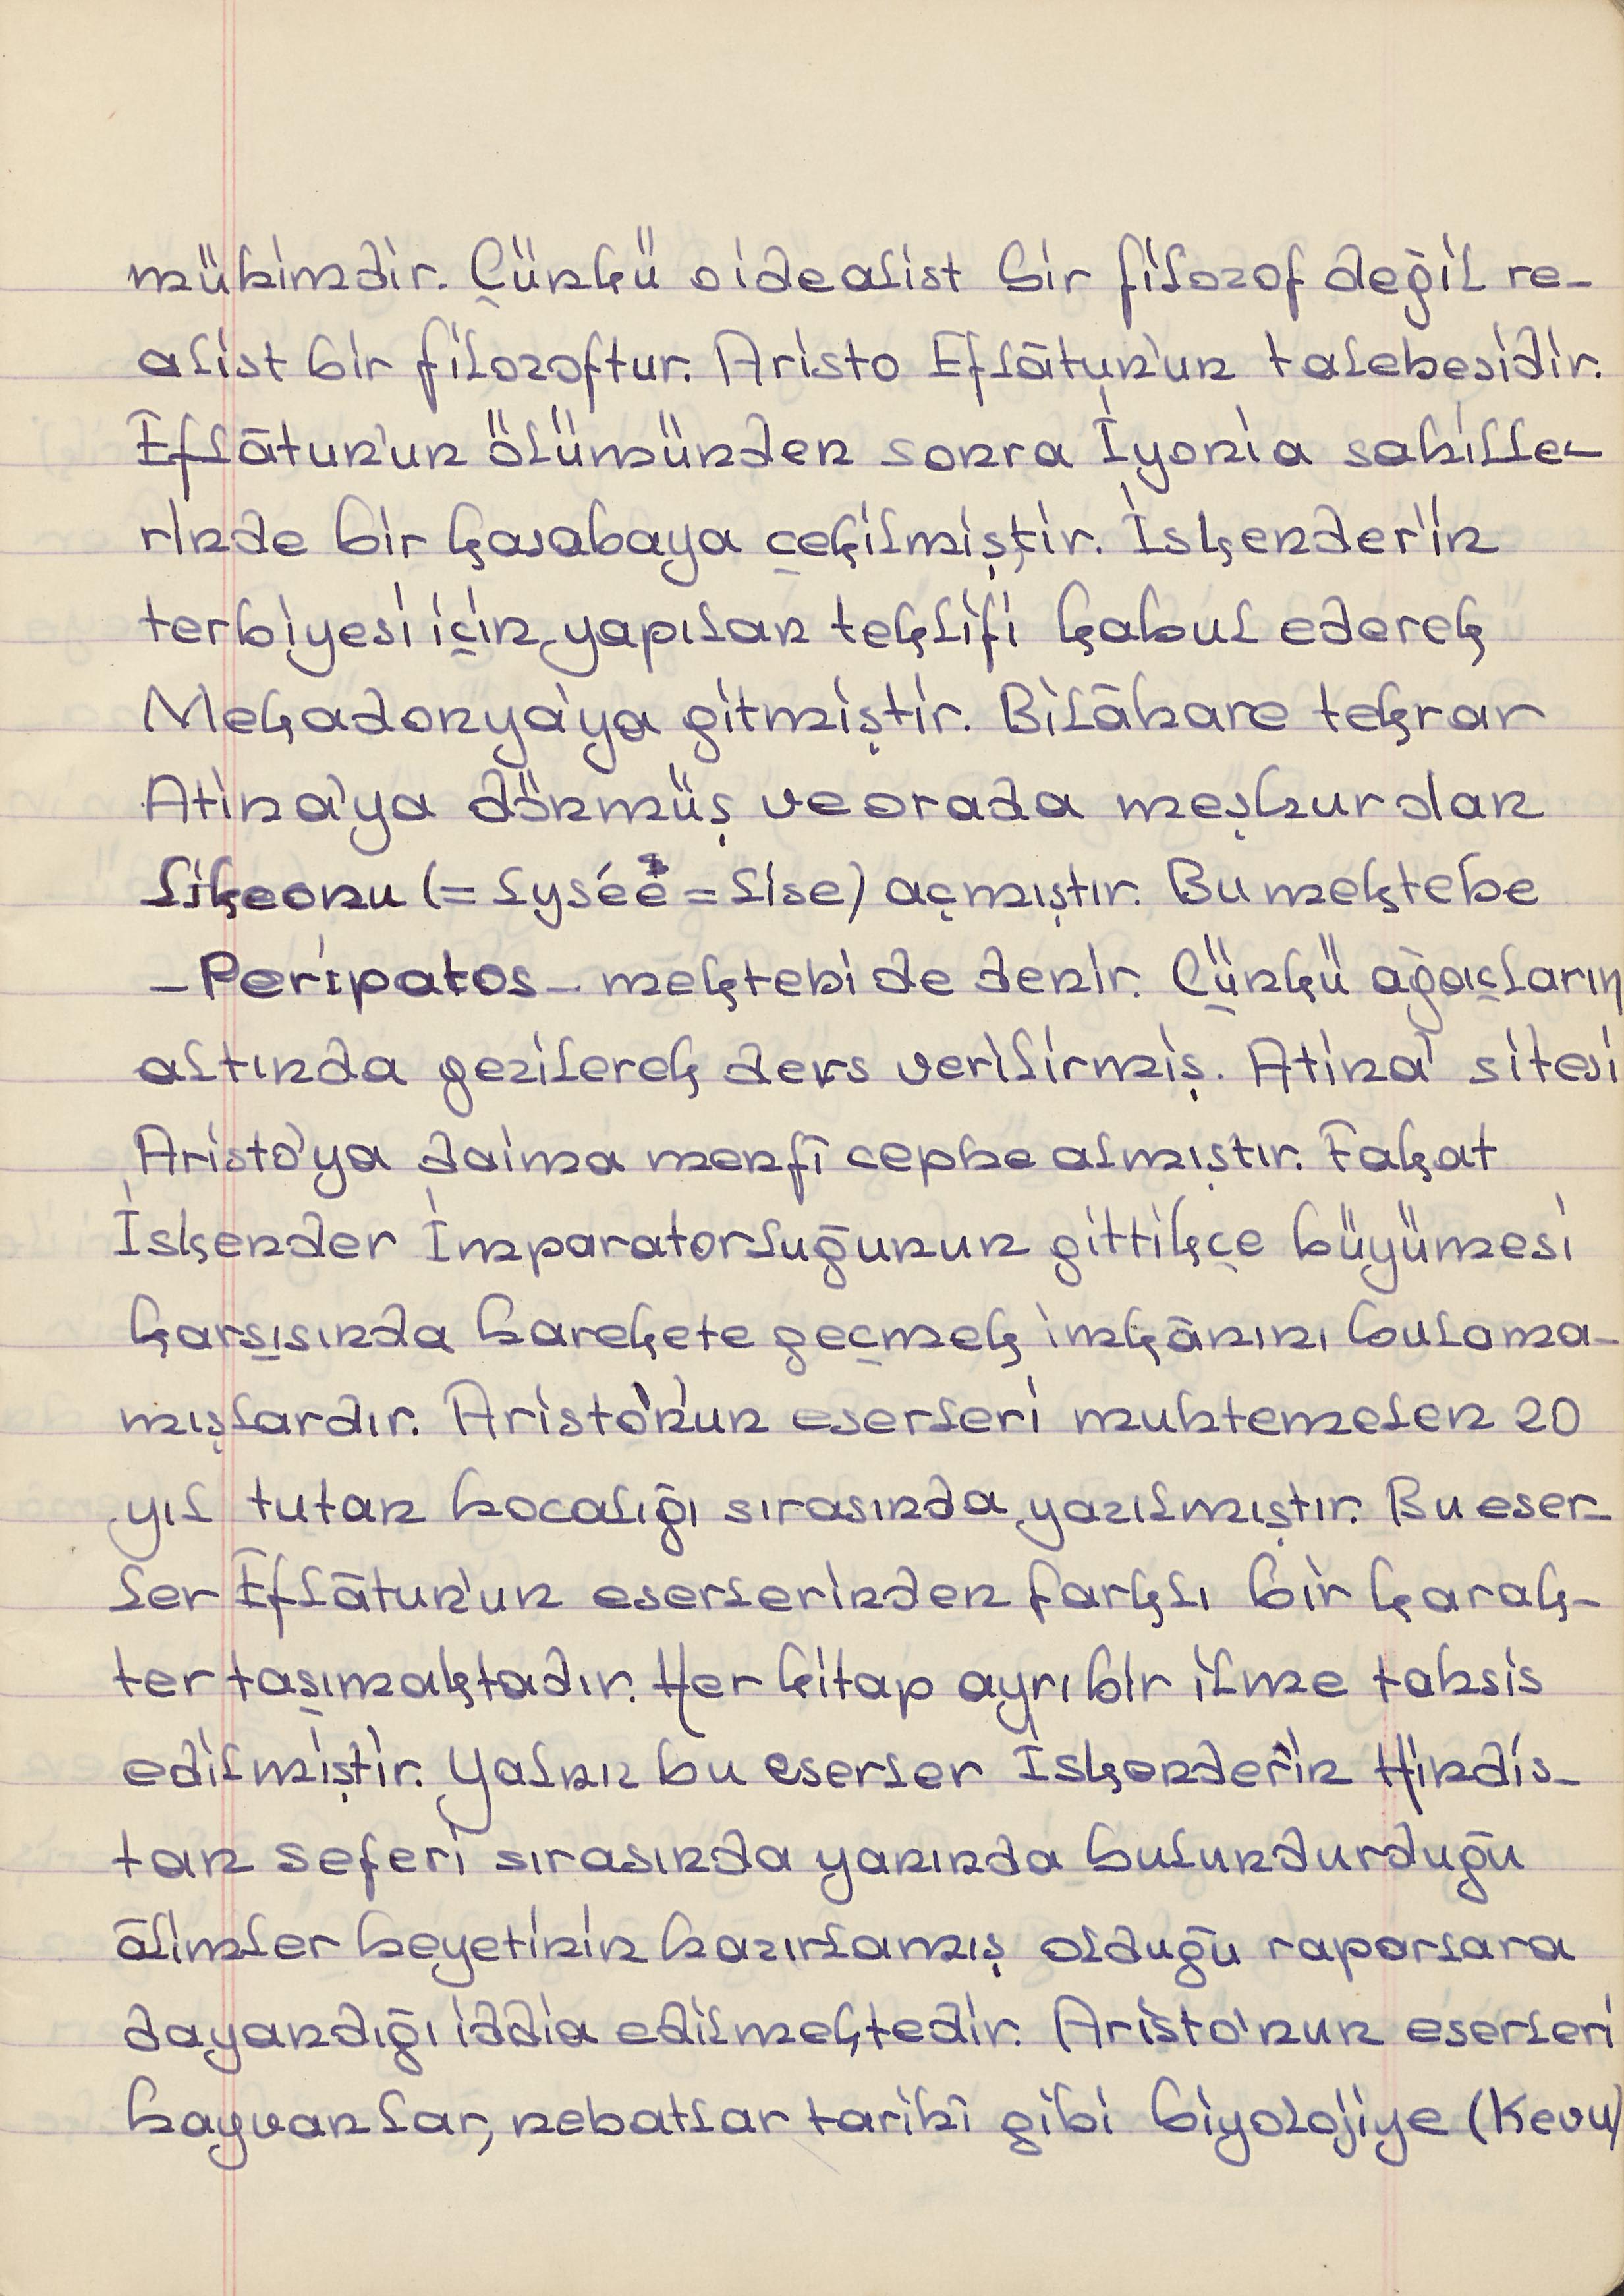 mühimdir. Çünkü o idealist bir filozof değil re-
alist bir filozoftur. Aristo Eflâtun'un talebesidir.
Eflâtun'un ölümünden sonra İyonia sahille-
rinde bir kasabaya çekilmiştir. İskender'in
terbiyesi için yapılan teklifi kabul ederek
Mekadonya'ya gitmiştir. Bilâhare tekrar
Atina'ya dönmüş ve orada meşhur olan
Likeonu (= Lysée = Lise) açmıştır. Bu mektebe
- Peripatos - mektebi de denir. Çünkü ağaçların
altında gezilerek ders verilirmiş. Atina sitesi
Aristo'ya daima menfî cephe almıştır. Fakat
İskender İmparatorluğunun gittikçe büyümesi
karşısında harekete geçmek imkânını bulama-
mışlardır. Aristo'nun eserleri muhtemelen 20
yıl tutan hocalığı sırasında yazılmıştır. Bu eser-
ler Eflâtun'un eserlerinden farklı bir karak-
ter taşımaktadır. Her kitap ayrı bir ilme tahsis
edilmiştir. Yalnız bu eserler İskender'in Hindis-
tan seferi sırasında yanında bulundurduğu
âlimler heyetinin hazırlamış olduğu raporlara
dayandığı iddia edilmektedir. Aristo'nun eserleri
hayvanlar, nebatlar tarihi gibi biyolojiye (Kevu)